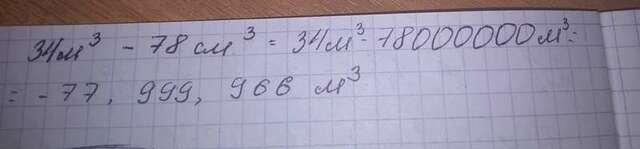 34м³ - 78см³ = 34м³ - 78000000м³ =
= - 77, 999, 966 м³